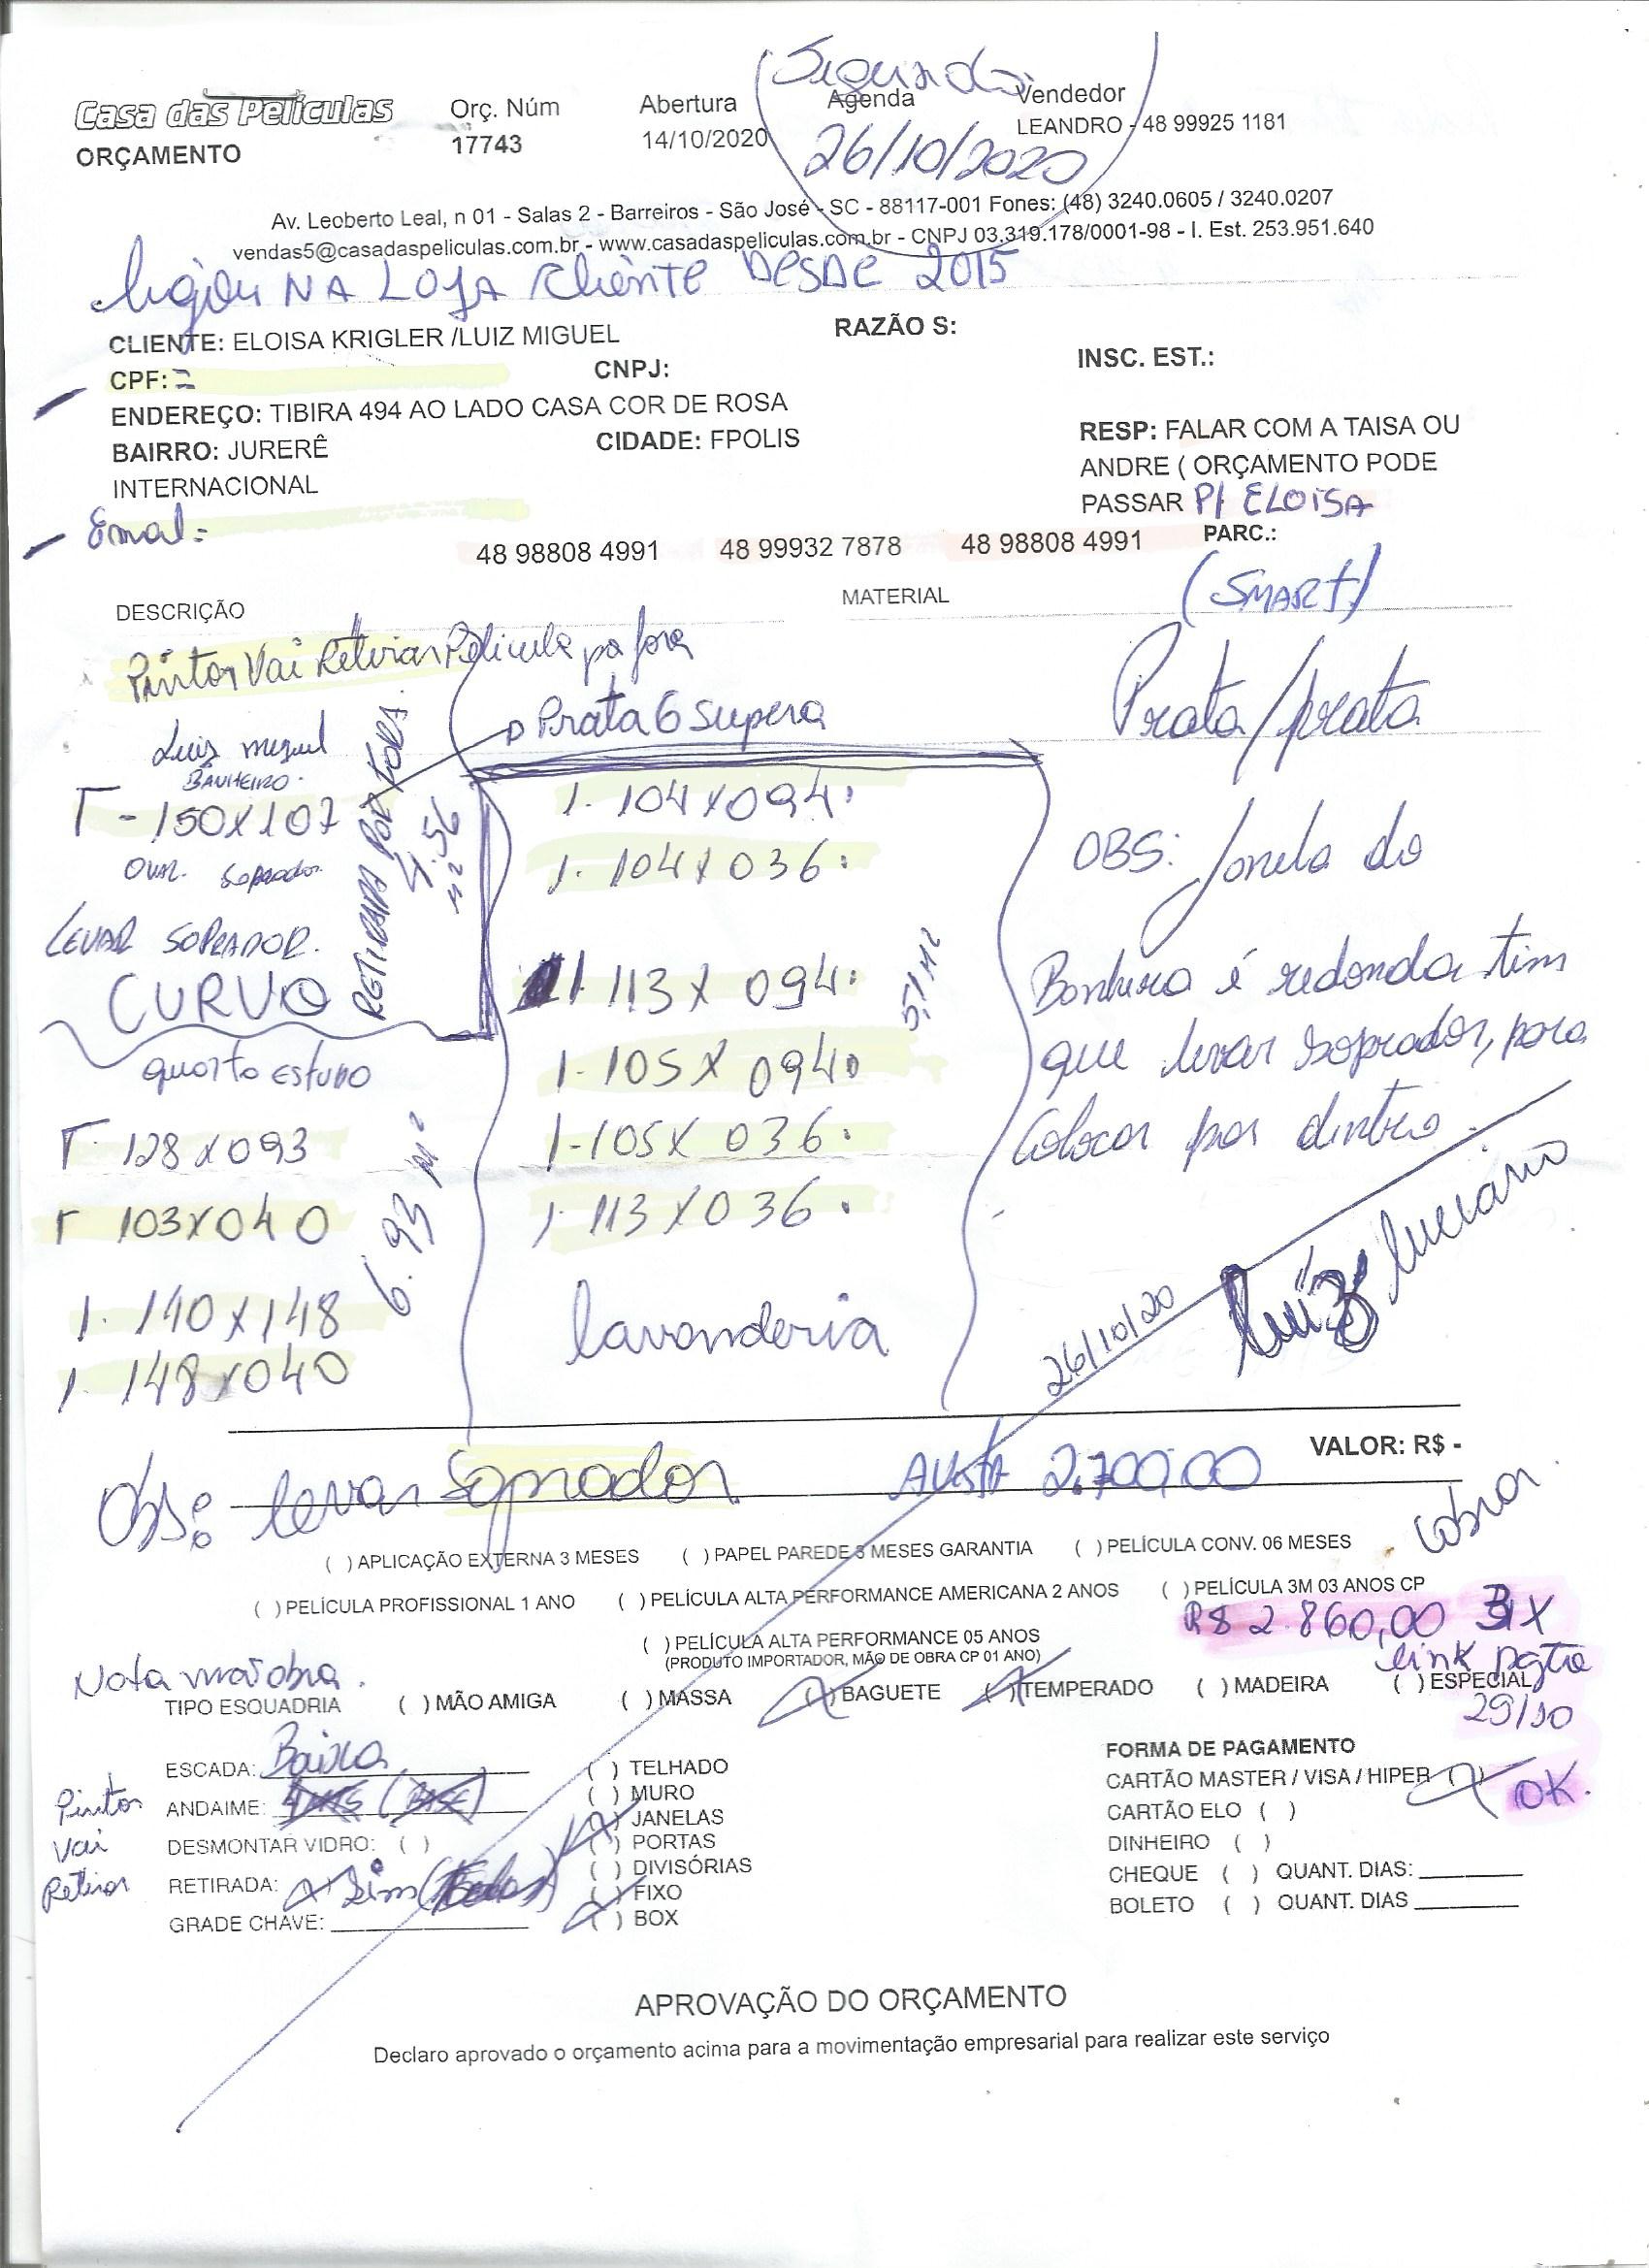 Segunda
Casa das Películas Orç. Núm Abertura Agenda Vendedor
ORÇAMENTO 17743 14/10/2020 26/10/2020 LEANDRO - 48 99925 1181
Av. Leoberto Leal, n 01 - Salas 2 - Barreiros - São José - SC - 88117-001 Fones: (48) 3240.0605 / 3240.0207
vendas5@casadaspeliculas.com.br - www.casadaspeliculas.com.br - CNPJ 03.319.178/0001-98 - I. Est. 253.951.640
ligou NA LOJA Cliente DESDE 2015
CLIENTE: ELOISA KRIGLER /LUIZ MIGUEL RAZÃO S:
CPF: CNPJ: INSC. EST.:
ENDEREÇO: TIBIRA 494 AO LADO CASA COR DE ROSA
BAIRRO: JURERÊ CIDADE: FPOLIS RESP: FALAR COM A TAISA OU
INTERNACIONAL ANDRE ( ORÇAMENTO PODE
PASSAR P/ ELOISA
Email: 48 98808 4991 48 99932 7878 48 98808 4991 PARC.:
DESCRIÇÃO MATERIAL (SMART)
Pintor Vai Retirar Película por fora
Prata 6 supera Prata/prata
Luis miguel
BANHEIRO
1 - 150X107
RETIRADA POR FORA
5.56 M2
soprador
LEVAR SOPRADOR.
CURVO
quarto estudo
1. 128x093
1 103X040
1. 140x148
1. 148x040
6.93 M2
1. 104X094
1. 104X036
1 113X 094
1. 105X 094
1-105X 036
1. 113X036
5,51 M2
lavanderia
OBS: Janela do
Banheiro é redonda tem
que levar soprador, para
colocar por dentro.
26/10/20 Luiz Luciano
VALOR: R$ -
Obs: levar Soprador AVISTA 2.700,00
cobrar
( ) APLICAÇÃO EXTERNA 3 MESES ( ) PAPEL PAREDE 3 MESES GARANTIA ( ) PELÍCULA CONV. 06 MESES
( ) PELÍCULA PROFISSIONAL 1 ANO ( ) PELÍCULA ALTA PERFORMANCE AMERICANA 2 ANOS ( ) PELÍCULA 3M 03 ANOS CP
R$ 2.860,00 3X
( ) PELÍCULA ALTA PERFORMANCE 05 ANOS
(PRODUTO IMPORTADOR, MÃO DE OBRA CP 01 ANO)
link pgto
Nota mão obra.
TIPO ESQUADRIA ( ) MÃO AMIGA ( ) MASSA (X) BAGUETE (X) TEMPERADO ( ) MADEIRA ( ) ESPECIAL
29/10
ESCADA: Baixa ( ) TELHADO FORMA DE PAGAMENTO
ANDAIME: ( ) MURO CARTÃO MASTER / VISA / HIPER (X) OK.
Pintor Vai Retirar
DESMONTAR VIDRO: ( ) (X) JANELAS CARTÃO ELO ( )
( ) PORTAS DINHEIRO ( )
RETIRADA: X Sim ( ) DIVISÓRIAS CHEQUE ( ) QUANT. DIAS:
( ) FIXO BOLETO ( ) QUANT. DIAS
GRADE CHAVE: (X) BOX
APROVAÇÃO DO ORÇAMENTO
Declaro aprovado o orçamento acima para a movimentação empresarial para realizar este serviço